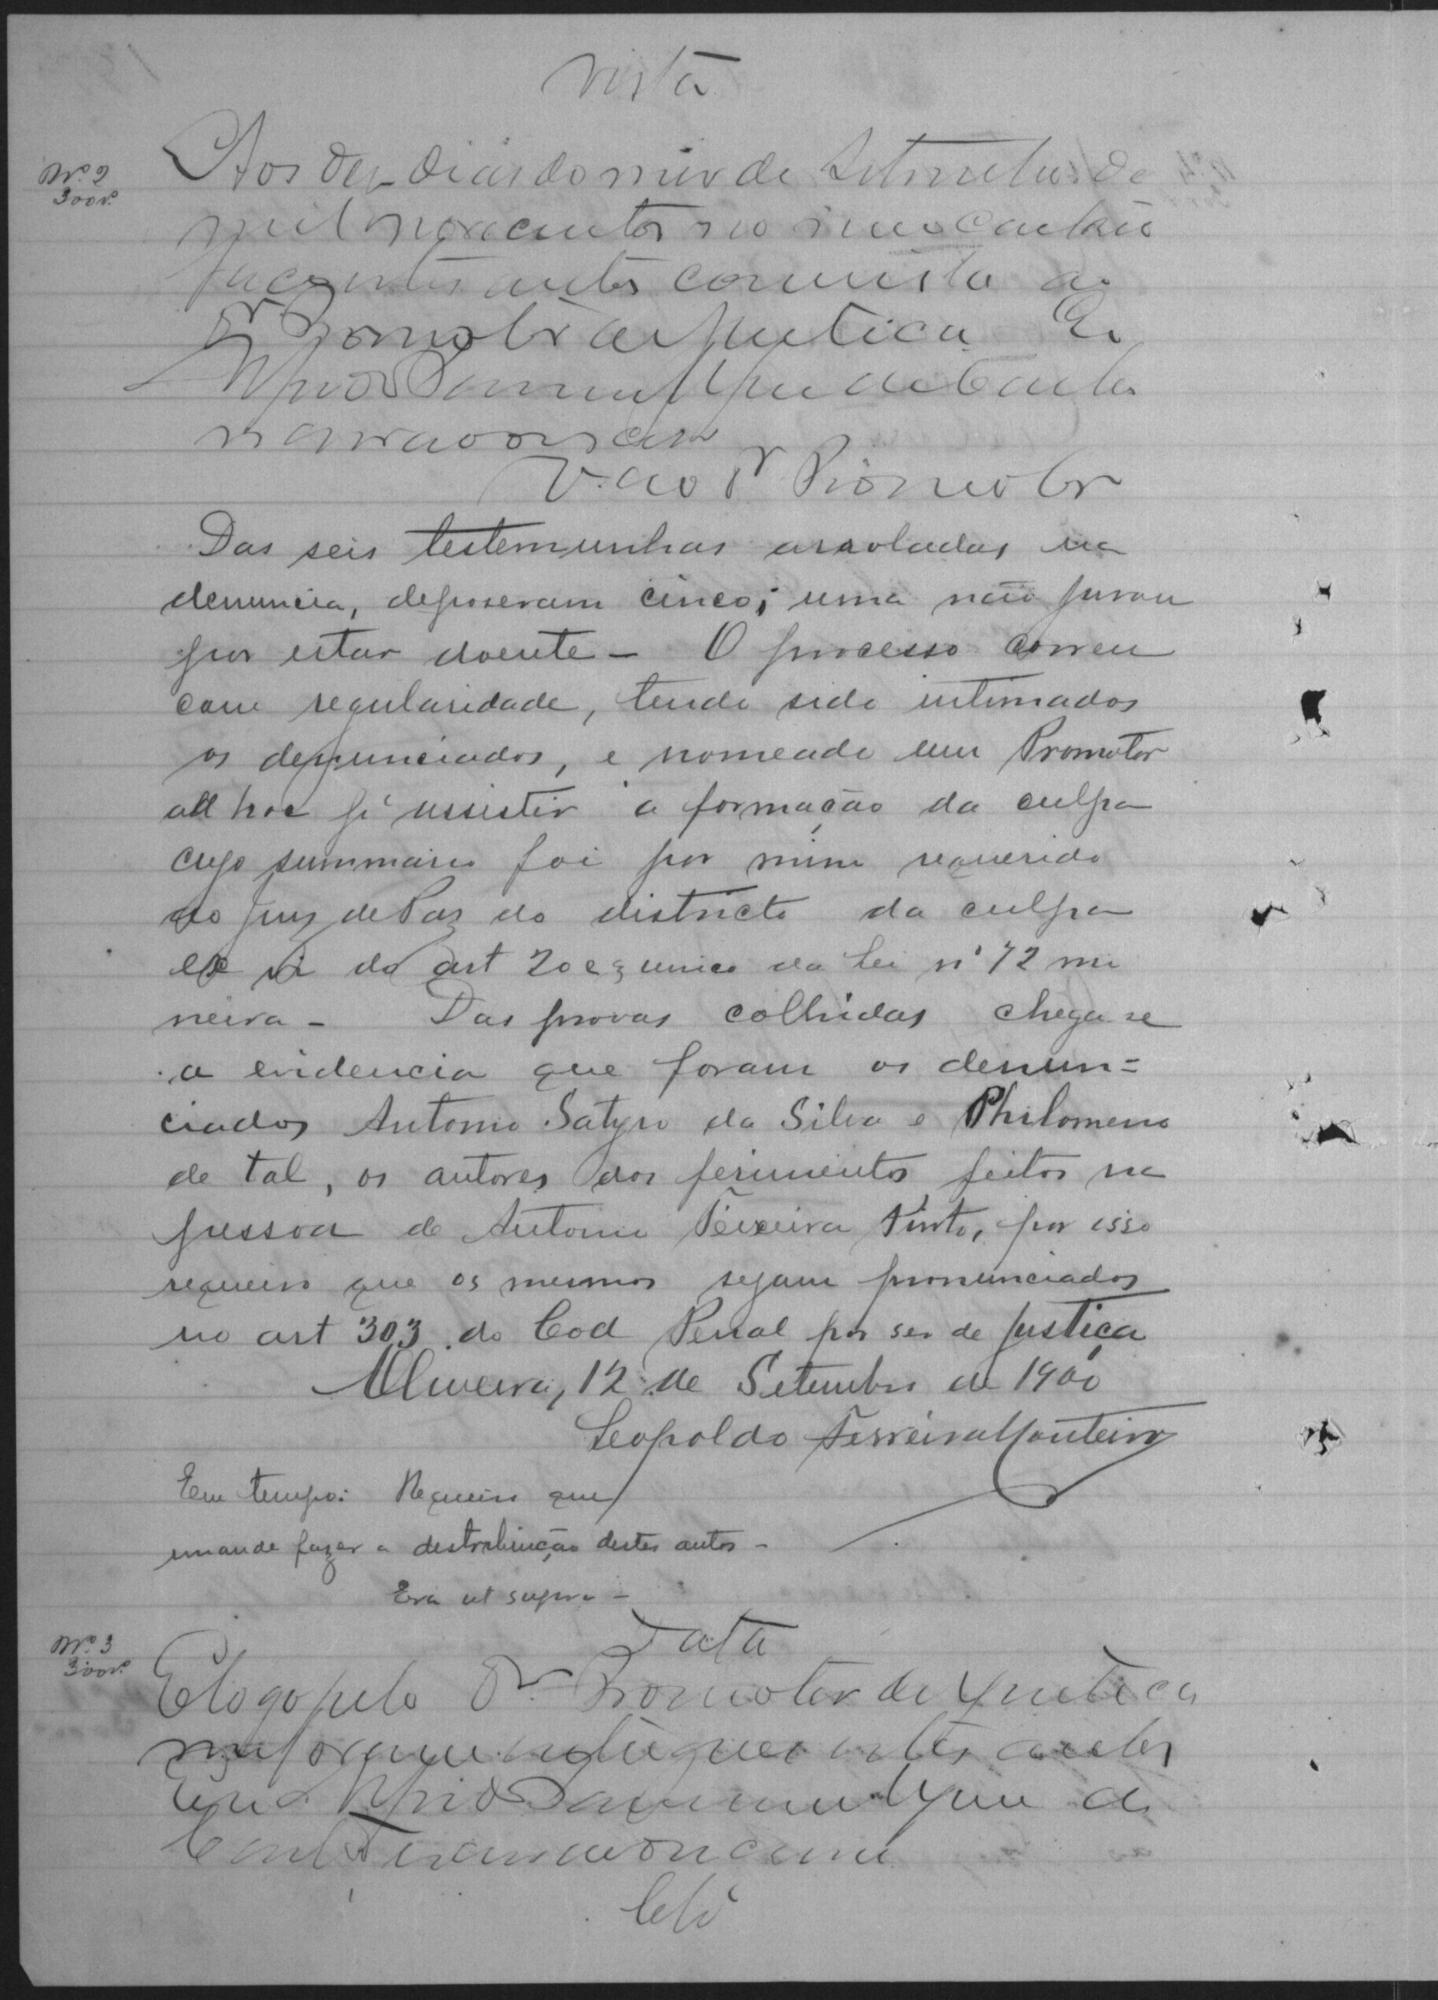 Vista
Nº 2
300 rs.
Aos dez dias do mez de Setembro de
mil novecentos no meu cartorio
faço estes autos com vista ao
Dr Promotor de Justica Eu
escrivão
V. ao Dr Promotor
Das seis testemunhas arroladas na
denuncia, depuseram cinco; uma não jurou
por estar doente – O processo correu
com regularidade, tendo sido intimados
os denunciados, e nomeado um Promotor
ad hoc pª assistir a formação da culpa
cujo summario foi por mim requerido
ao Juiz de Paz do districto da culpa
ex vi do art 20 e § unico da lei nº 72 mi
neira – Das provas colhidas chega se
a evidencia que foram os denun=
ciados Antonio Satyro da Silva e Philomeno
de tal, os autores dos ferimentos feitos na
pessoa de Antonio Teixeira Pinto, por isso
requeiro que os mesmos sejam pronunciados
no art 303 do Cod Penal por ser de Justiça
Oliveira, 12 de Setembro de 1900
Leopoldo Ferreira Monteiro
Em tempo: Requeiro que
mande fazer a destribuição destes autos –
Era ut supra –
Data
Nº 3
300 rs.
E logo pelo Dr. Promotor de Justica
me foram entregues estes autos
Eu
Clº